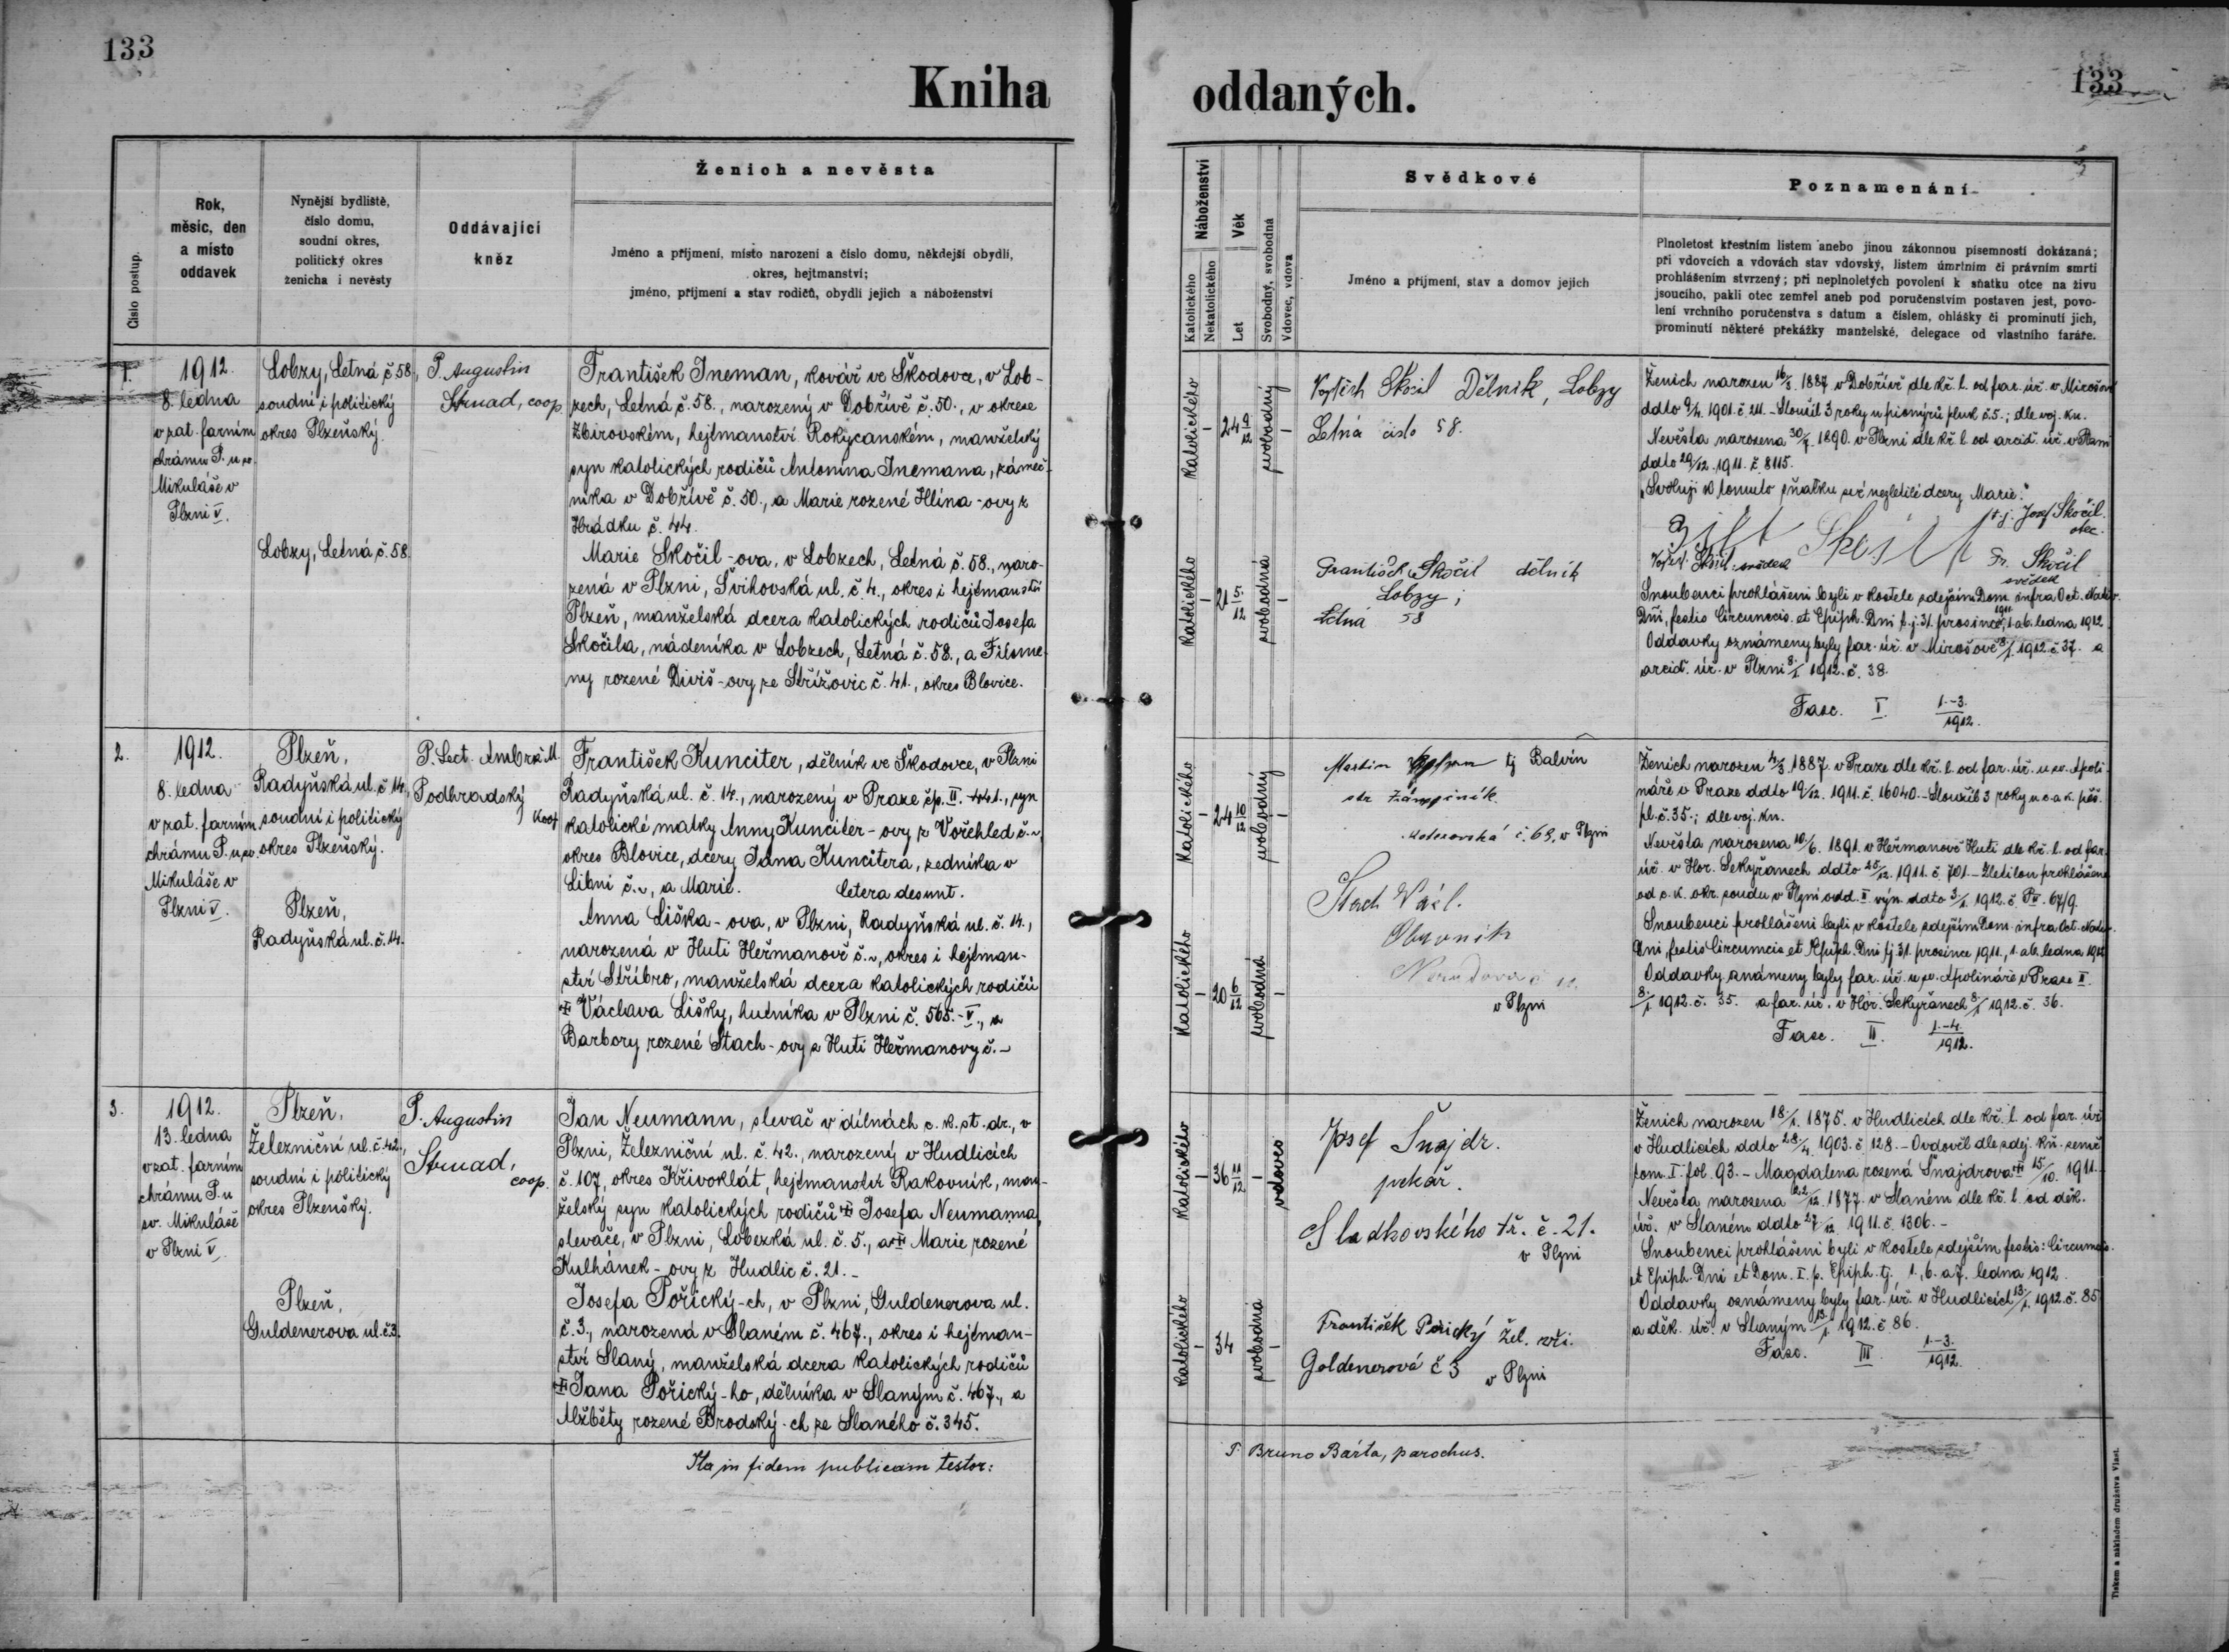 133
Kniha
oddaných.
133
Číslo postup.
Rok,
měsíc, den
a místo
oddavek
Nynější bydliště,
číslo domu,
soudní okres,
politický okres
ženicha i nevěsty
Oddávající
kněz
Ženich a nevěsta
Jméno a příjmení, místo narození a číslo domu, někdejší obydlí,
okres, hejtmanství;
jméno, příjmení a stav rodičů, obydlí jejich a náboženství
Náboženství
Katolického
Nekatolického
Věk
Let
Svobodný, svobodná
Vdovec, vdova
Svědkové
Jméno a příjmení, stav a domov jejich
Poznamenání
Plnoletost křestním listem anebo jinou zákonnou písemností dokázaná;
při vdovcích a vdovách stav vdovský, listem úmrtním či právním smrti
prohlášením stvrzený; při neplnoletých povolení k sňatku otce na živu
jsoucího, pakli otec zemřel aneb pod poručenstvím postaven jest, povo-
lení vrchního poručenstva s datum a číslem, ohlášky či prominutí jich,
prominutí některé překážky manželské, delegace od vlastního faráře.
1.
1912.
8. ledna
v zat. farním
chrámu P. u sv.
Mikuláše v
Plzni V.
Lobzy, Letná č 58,
soudní i politický
okres Plzeňský.
Lobzy, Letná č. 58.
P. Augustin
Strnad, coop
František Ineman, kovář ve Škodovce, v Lob-
zech, Letná č. 58., narozený v Dobřívě č. 50., v okrese
Zbirovském, hejtmanství Rokycanském, manželský
syn katolických rodičů Antonína Inemana, zámeč-
níka v Dobřívě č. 50., a Marie rozené Hlína-ovy z
Hrádku č. 44.
Marie Skočil-ova, v Lobzech, Letná č. 58., naro-
zená v Plzni, Švihovská ul. č. 4., okres i hejtmanství
Plzeň, manželská dcera katolických rodičů Josefa
Skočila, nádeníka v Lobzech, Letná č. 58., a Filome-
ny rozené Diviš-ovy ze Střížovic č. 41., okres Blovice.
katolického
-
24 9/12
svobodný
-
katolického
-
21 5/12
svobodná
-
Vojtěch Skočil Dělník, Lobzy
Letná číslo 58.
František Skočil dělník
Lobzy;
Letná 58
Ženich narozen 16/3. 1887. v Dobřívě dle kř. l. od far. úř. v Mirošově
ddto 9/4. 1901. č. 211. - Sloužil 3 roky u pionýrů pluk č. 5.; dle voj. kn.
Nevěsta narozena 30/7. 1890. v Plzni dle kř. l. od arcid. úř. v Plzni
ddto 29/12. 1911. č. 8115.
"Svoluji k tomuto sňatku své nezletilé dcery Marie."
tj. Josef Skočil
otec.
Vojtěch Skočil svědek
Fr. Skočil
svědek
Snoubenci prohlášeni byli v kostele zdejším Dom. infra Oct. Nativ.
Dni, festis Circumcis. et Epiph. Dni t. j. 31. prosince 1911, 1. a 6. ledna 1912
Oddavky oznámeny byly far. úř. v Mirošově 8/1. 1912. č. 37. a
arcid. úř. v Plzni 8/1 1912. č. 38.
Fasc. I 1.-3. 1912.
2.
1912.
8. ledna
v zat. farním
chrámu P. u sv.
Mikuláše v
Plzni V.
Plzeň,
Radyňská ul. č 14,
soudní i politický
okres Plzeňský.
Plzeň,
Radyňská ul. č. 14.
P. Lect. Ambrož M.
Podhradský
koop
František Kunciter, dělník ve Škodovce, v Plzni
Radyňská ul. č. 14., narozený v Praze čp. II. 441., syn
katolické matky Anny Kunciter-ovy z Vořehled č. ~,
okres Blovice, dcery Jana Kuncitera, zedníka v
Libni č. ~, a Marie. Cetera desunt.
Anna Liška-ova, v Plzni, Radyňská ul. č. 14.,
narozená v Huti Heřmanově č. ~, okres i hejtman-
ství Stříbro, manželská dcera katolických rodičů
Václava Lišky, hutníka v Plzni č. 565.-V., a
Barbory rozené Stach-ovy z Huti Heřmanovy č. -
katolického
-
24 10/12
svobodný
-
katolického
-
20 6/12
svobodná
-
Martin tj Balvín
č. 69, v Plzni
Stach Václ.
Obuvník
v Plzni
Ženich narozen 4/3. 1887. v Praze dle kř. l. od far. úř. u sv. Apoli-
náře v Praze ddto 19/12. 1911. č. 16040. - Sloužil 3 roky u c. a k. pěš.
pl. č. 35.; dle voj. kn.
Nevěsta narozena 10/6. 1891. v Heřmanově Huti dle kř. l. od far.
úř. v Hor. Sekyřanech ddto 25/12. 1911. č. 701. - Zletilou prohlášena
od c. k. okr. soudu v Plzni odd. V výn. ddto 3/1. 1912. č. P V. 67/9.
Snoubenci prohlášeni byli v kostele zdejším Dom. infra Oct. Nativ.
Dni festis Circumcis et Epiph. Dni tj 31. prosince 1911., 1. a 6. ledna 1912
Oddavky oznámeny byly far. úř. u sv. Apolináře v Praze II.
8./1 1912. č. 35. a far. úř. v Hor. Sekyřanech 8/1 1912. č. 36.
Fasc. II. 1.-4. 1912.
3.
1912.
13. ledna
v zat. farním
chrámu P. u
sv. Mikuláše
v Plzni V.
Plzeň,
Železniční ul. č. 42.,
soudní i politický
okres Plzeňský.
Plzeň,
Guldenerova ul. č. 3.
P. Augustin
Strnad,
coop.
Jan Neumann, slevač v dílnách c. k. st. dr., v
Plzni, Železniční ul. č. 42., narozený v Hudlicích
č. 107, okres Křivoklát, hejtmanství Rakovník, man-
želský syn katolických rodičů Josefa Neumanna,
slevače, v Plzni, Lobezká ul. č. 5., a Marie rozené
Kulhánek-ovy z Hudlic č. 21. -
Josefa Pořický-ch, v Plzni, Guldenerova ul.
č. 3., narozená v Slaném č. 467., okres i hejtman-
ství Slaný, manželská dcera katolických rodičů
Jana Pořický-ho, dělníka v Slaným č. 467., a
Alžběty rozené Brodský-ch ze Slaného č. 345.
katolického
-
36 11/12
-
vdovec
katolického
-
34
svobodná
-
Josef Šnajdr.
pekař.
Sladkovského tř. č. 21.
v Plzni
František Pořický žel. zříz.
Goldenerová č 3 v Plzni
Ženich narozen 18./1. 1875. v Hudlicích dle kř. l. od far. úř.
v Hudlicích ddto 28./4. 1903. č. 128. - Ovdověl dle zdej. kn. zemř.
tom. I. fol. 93. - Magdalena rozená Šnajdrova 15/10. 1911.
Nevěsta narozena 22/12 1877. v Slaném dle kř. l. od děk.
úř. v Slaném ddto 27/12 1911. č. 1306. -
Snoubenci prohlášeni byli v kostele zdejším festis: Circumcis.
et Epiph. Dni et Dom. I. p. Epiph. tj. 1., 6. a 7. ledna 1912.
Oddavky oznámeny byly far. úř. v Hudlicích 13/1. 1912. č. 85
a děk. úř. v Slaným 13/1. 1912. č. 86.
Fasc. III 1-3. 1912.
Ita in fidem publicam testor:
P. Bruno Bárta, parochus.
Tiskem a nákladem družstva Vlast.